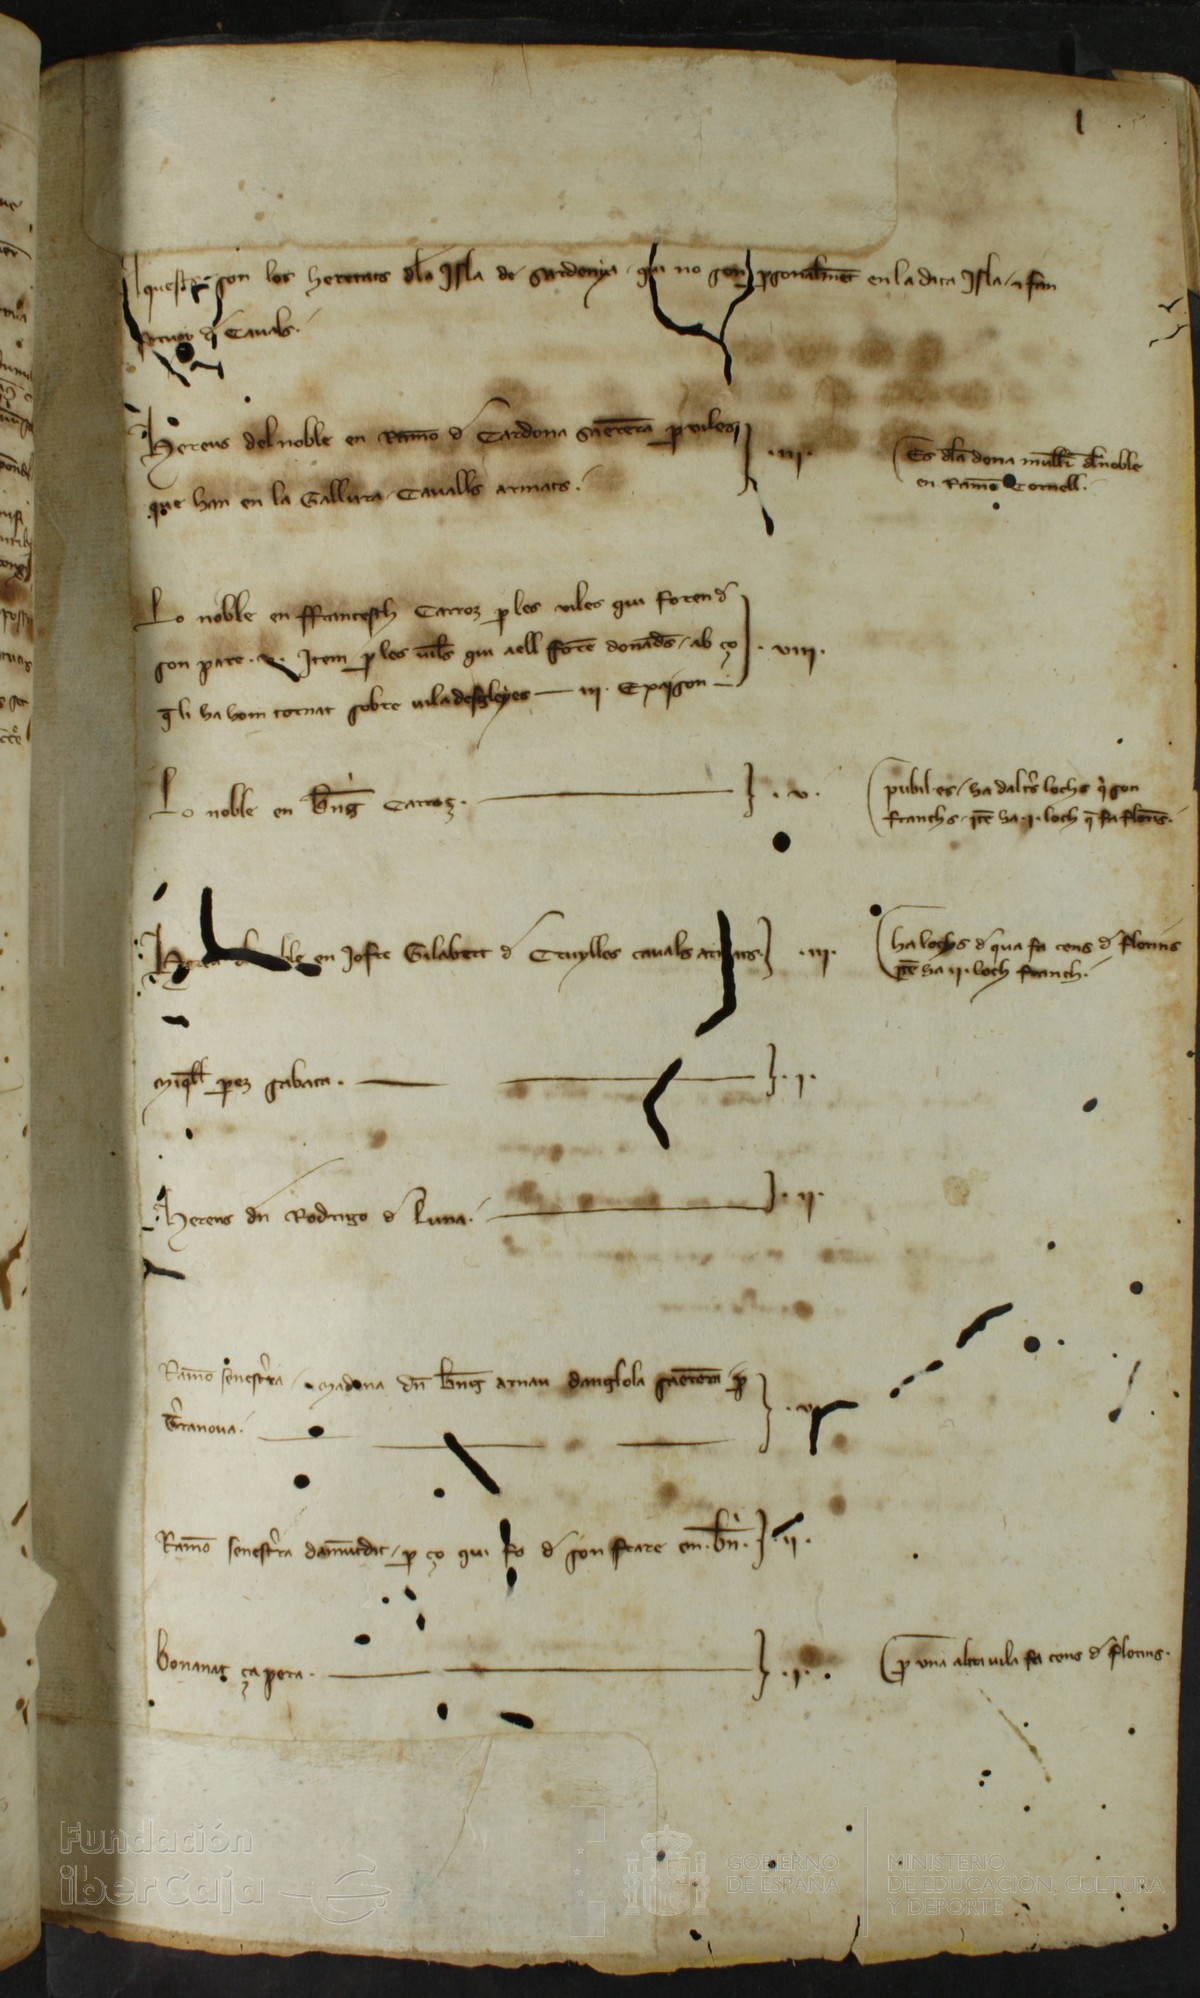 1
Aquests son los heretats dla Isla de Serdenya qui no son psonalmet en la dita Isla & fan
servey d Cavals.
Hereus del noble en Ramo d Cardona saenrera p viles
que han en la Gallura Cavalls armats. } .III. (Es dla dona mullr dl noble
en Ramo Cornell.
Lo noble en ffrancesch Carroz p les viles qui foren d
son pare .v. Item p les viles qui a ell fore donads ab ço } .VIII.
q li ha hom tornat sobre viladesgleyes — III. E pai son —
Lo noble en bng Carroz. — } .v. (pubil es ha daltrs lochs qi son
franchs ite ha .I. loch q fa florins.
en Jofre Gilabert d Cruylles cavals armats. } .III. (ha lochs d qua fa cens d florins
ite ha II. loch franch.
Miqll pez sabata. — } .I.
Hereus dn Rodrigo d luna. — } .II.
Ramo senestrra madona dn bng arnau danglola saenrera p
Trranova. — }
Ramo senestrra damutdit p ço qui fo d son frare en .bn. } .II.
Bonanat ça pera. — } .I. (p una altra vila fa cens d florins.
Fundación
iberCaja
GOBIERNO
DE ESPAÑA
MINISTERIO
DE EDUCACIÓN, CULTURA
Y DEPORTE